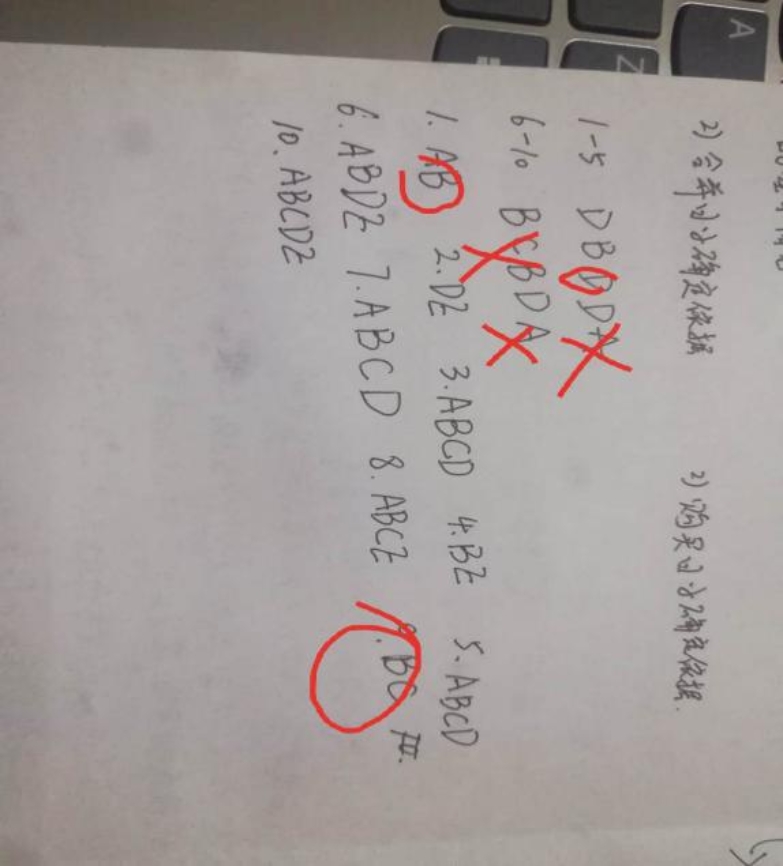 2) 合并日的确定依据 2) 购买日的确定依据.
1-5 DBDDA
6-10 BCBDA
1. AB 2. DE 3. ABCD 4. BE 5. ABCD
6. ABDE 7. ABCD 8. ABCE 9. BC
10. ABCDE
A
Z